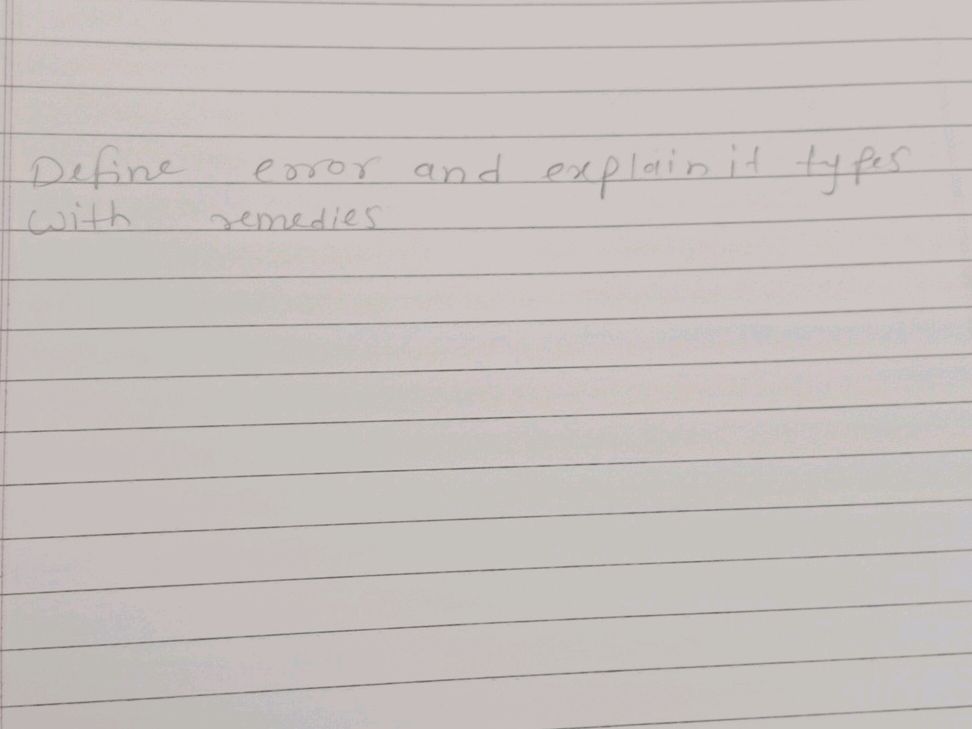 Define error and explain it types
with remedies